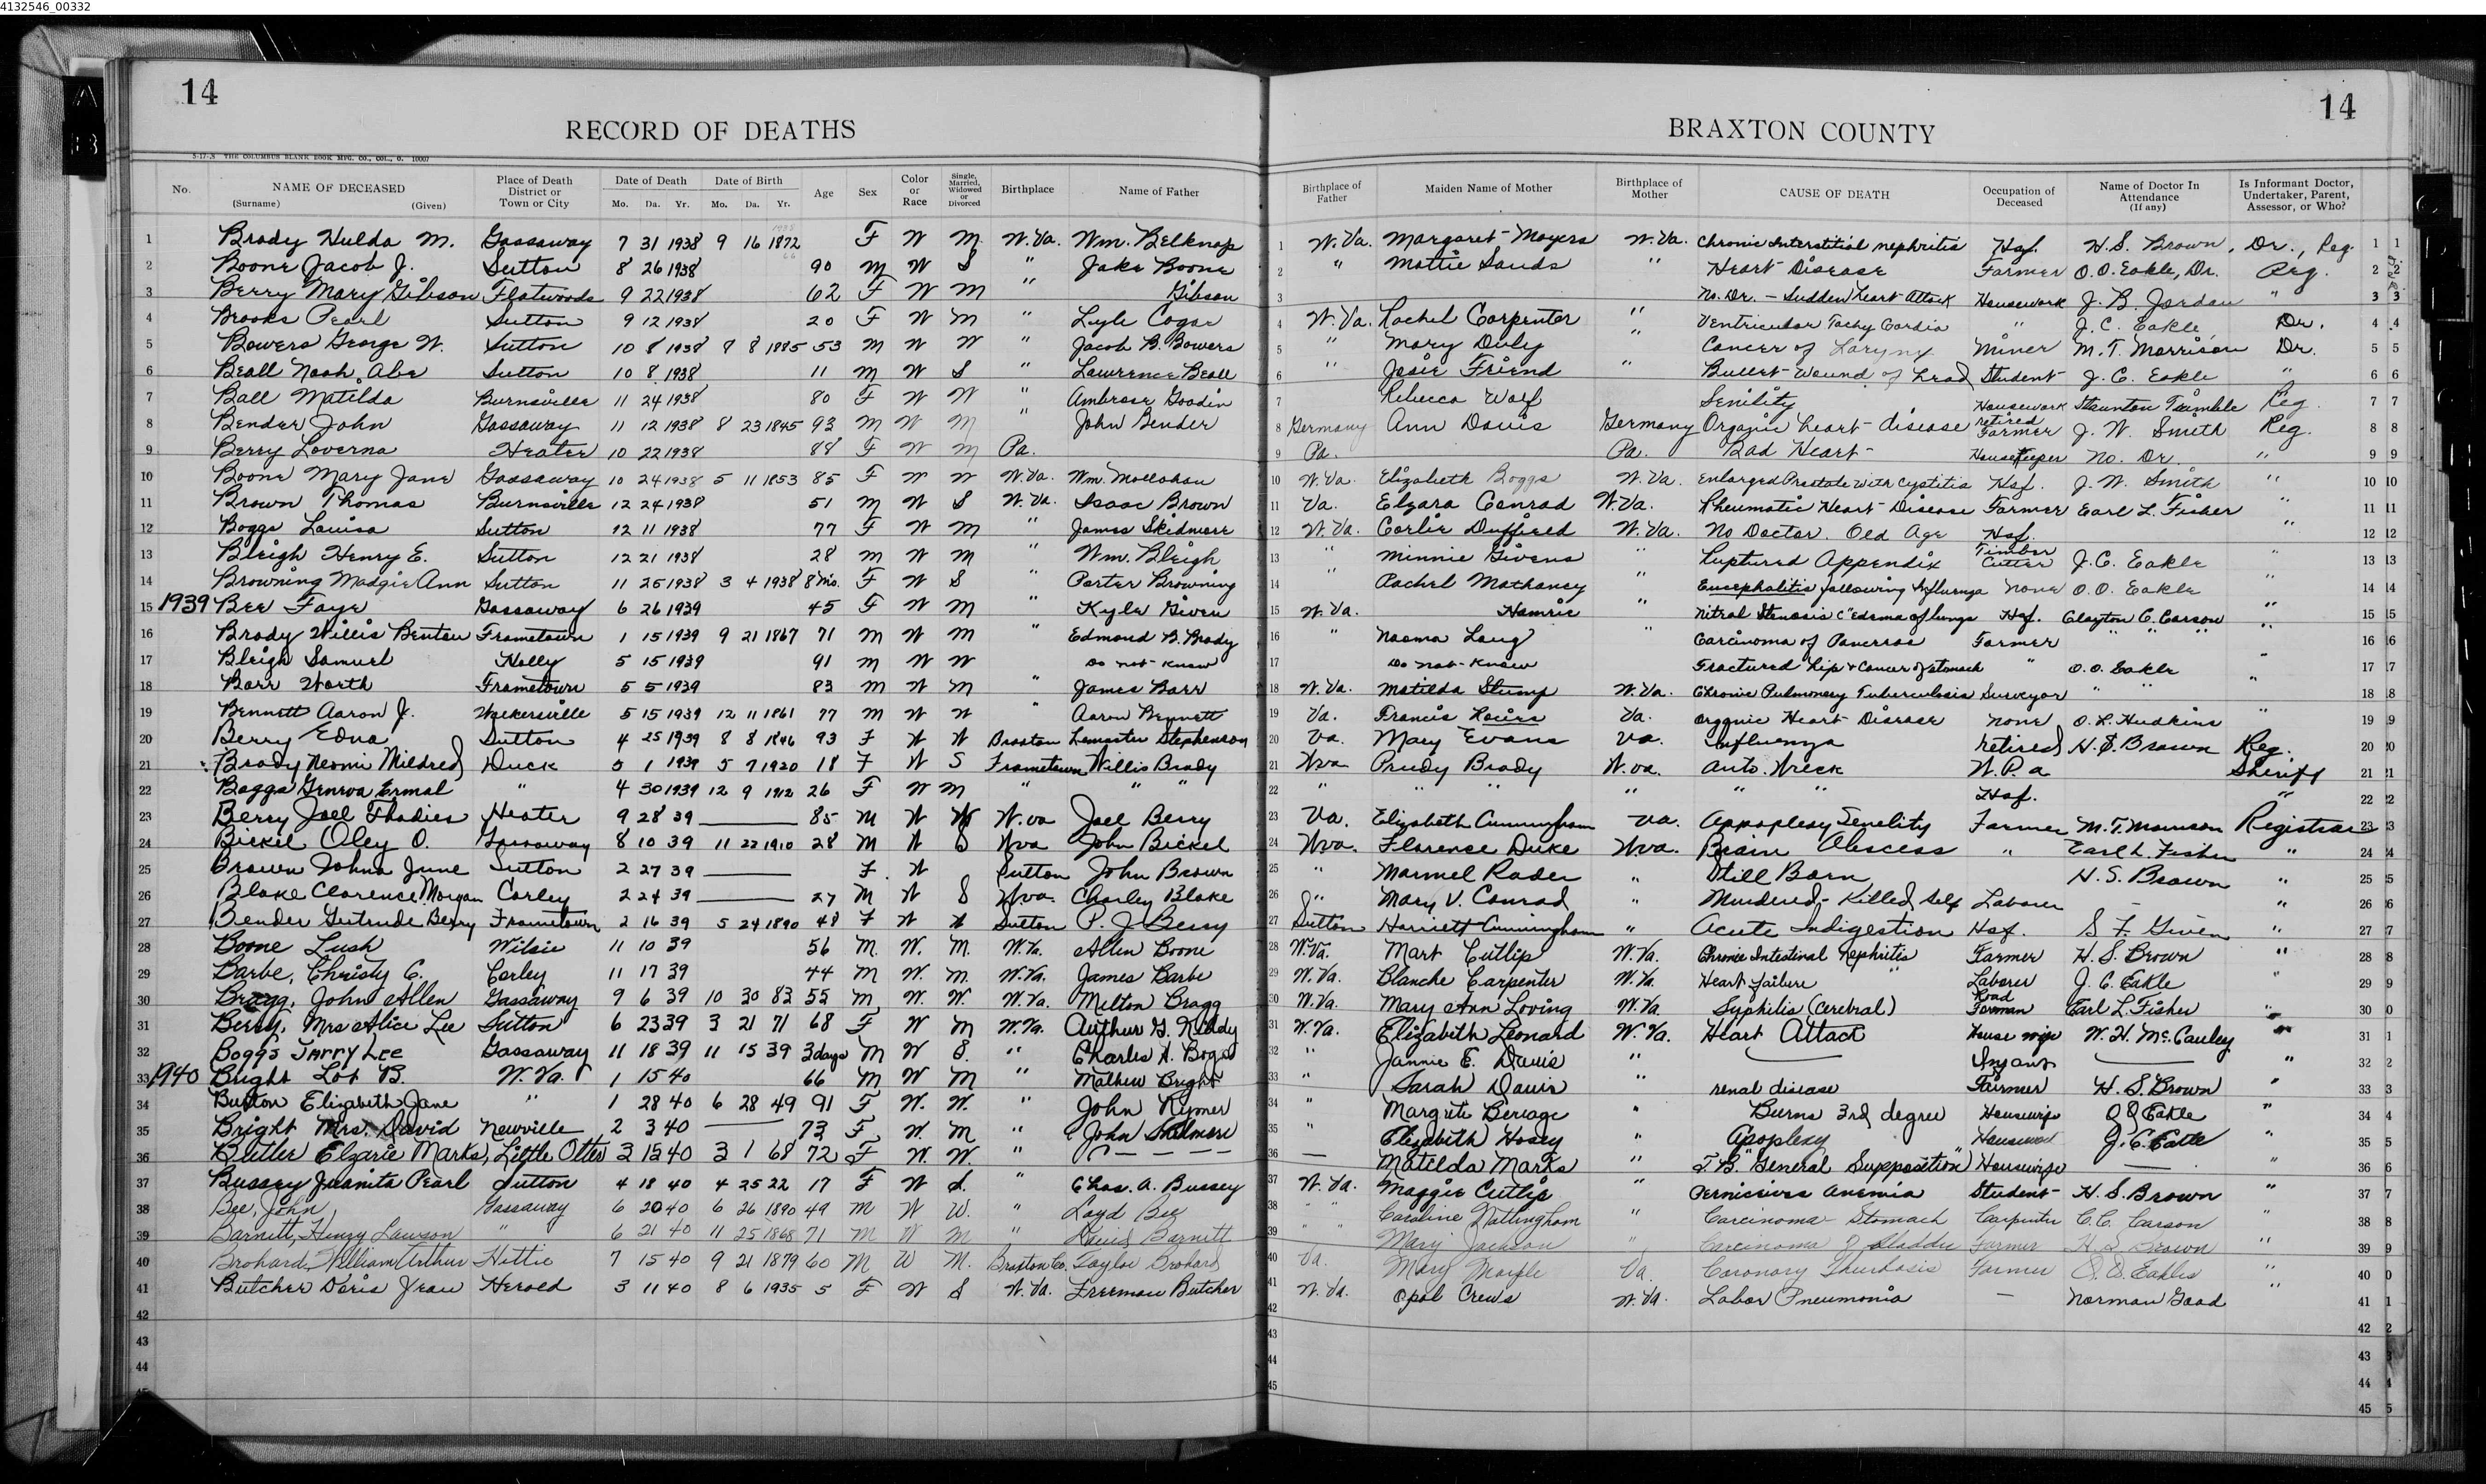 4132546_00332
14
RECORD OF DEATHS
5-17-N THE COLUMBUS BLANK BOOK MFG. CO., COL., O. 10007
No. NAME OF DECEASED (Surname) (Given) Place of Death District or Town or City Date of Death Mo. Da. Yr. Date of Birth Mo. Da. Yr. Age Sex Color or Race Single, Married, Widowed or Divorced Birthplace Name of Father
1 Brady Hulda M. Gassaway 7 31 1938 9 16 1872 F W M. W. Va. Wm. Belknap
2 Boone Jacob J. Sutton 8 26 1938 90 M W S " Jake Boone
3 Berry Mary Gibson Flatwoods 9 22 1938 62 F W M " Gibson
4 Brooks Pearl Sutton 9 12 1938 20 F W M " Lyle Cogar
5 Bowers George W. Sutton 10 8 1938 9 8 1885 53 M W W " Jacob B. Bowers
6 Beall Noah Abe Sutton 10 8 1938 11 M W S " Lawrence Beall
7 Ball Matilda Burnsville 11 24 1938 80 F W W " Ambrose Goodin
8 Bender John Gassaway 11 12 1938 8 23 1845 93 M W M " John Bender
9 Berry Loverna Heater 10 22 1938 88 F W M Pa.
10 Boone Mary Jane Gassaway 10 24 1938 5 11 1853 85 F W W W. Va. Wm. Mollohan
11 Brown Thomas Burnsville 12 24 1938 51 M W S W. Va. Isaac Brown
12 Boggs Louisa Sutton 12 11 1938 77 F W M " James Skidmore
13 Bleigh Henry E. Sutton 12 21 1938 28 M W M " Wm. Bleigh
14 Browning Madgie Ann Sutton 11 25 1938 3 4 1938 8 mo. F W S " Porter Browning
15 1939 Bee Faye Gassaway 6 26 1939 45 F W M " Kyle Given
16 Brady Willis Benton Frametown 1 15 1939 9 21 1867 71 M W M " Edmond B. Brady
17 Bleigh Samuel Holly 5 15 1939 91 M W W Do not know
18 Barr Worth Frametown 5 5 1939 83 M W M " James Barr
19 Bennett Aaron J. Walkersville 5 15 1939 12 11 1861 77 M W W " Aaron Bennett
20 Berry Edna Sutton 4 25 1939 8 8 1846 93 F W W Braxton Lemaster Stephenson
21 Brady Neomi Mildred Duck 5 1 1939 5 7 1920 18 F W S Frametown Willis Brady
22 Boggs Geneva Ermal " 4 30 1939 12 9 1912 26 F W M " " "
23 Berry Joel Thadies Heater 9 28 39 85 M W W W. Va Joel Berry
24 Bickel Oley O. Gassaway 8 10 39 11 22 1910 28 M W S Wva John Bickel
25 Brown Johna June Sutton 2 27 39 F. W Sutton John Brown
26 Blake Clarence Morgan Corley 2 24 39 27 M W S Wva. Charley Blake
27 Bender Gertrude Berry Frametown 2 16 39 5 24 1890 48 F W Sutton P. J. Berry
28 Boone Lush Wilsie 11 10 39 56 M. W. M. W. Va. Allen Boone
29 Barbe, Christy C. Corley 11 17 39 44 M W. M. W. Va. James Barbe
30 Bragg, John Allen Gassaway 9 6 39 10 30 83 55 M W. W. W. Va. Melton Bragg
31 Berry, Mrs Alice Lee Sutton 6 23 39 3 21 71 68 F W M W. Va. Authur G. Kiddy
32 Boggs Jarry Lee Gassaway 11 18 39 11 15 39 3 days M W S. " Charles H. Boggs
33 1940 Bright Lot B. W. Va. 1 15 40 66 M W M " Mathew Bright
34 Burton Elizabeth Jane " 1 28 40 6 28 49 91 F W. W. " John Rymer
35 Bright Mrs. David Newville 2 3 40 73 F W. M " John Skidmore
36 Butler Elzarie Marks, Little Otter 3 15 40 3 1 68 72 F W. W. "
37 Bussey Juanita Pearl Sutton 4 18 40 4 25 22 17 F W S. " Chas. A. Bussey
38 Bee, John Gassaway 6 20 40 6 26 1890 49 M W W. " Loyd Bee
39 Barnett, Henry Lawson " 6 21 40 11 25 1868 71 M W M " David Barnett
40 Brohard, William Arthur Hettie 7 15 40 9 21 1879 60 M W M. Braxton Co. Taylor Brohard
41 Butcher Doris Jean Herold 3 11 40 8 6 1935 5 F W S W. Va. Freeman Butcher
42
43
44
45
14
BRAXTON COUNTY
Birthplace of Father Maiden Name of Mother Birthplace of Mother CAUSE OF DEATH Occupation of Deceased Name of Doctor In Attendance (If any) Is Informant Doctor, Undertaker, Parent, Assessor, or Who?
1 W. Va. Margaret Mayers W. Va. Chronic Interstitial nephritis Hsf. H. S. Brown, Dr., Reg 1
2 " Mattie Sands " Heart Disease Farmer O. O. Eakle, Dr. Reg. 2
3 No. Dr. - Sudden heart attack Housework J. B. Jordan " 3
4 W. Va. Rachel Carpenter " Ventricular Tachy Cardia " J. C. Eakle, Dr. 4
5 " Mary Duley " Cancer of Larynx Miner M. T. Morrison Dr. 5
6 " Josie Friend " Bullet wound of head Student J. C. Eakle " 6
7 Rebecca Wolf Senility Housework Staunton Trimble Reg. 7
8 Germany Ann Davis Germany Organic heart disease retired Farmer J. W. Smith Reg. 8
9 Pa. Pa. Bad Heart Housekeeper No. Dr. " 9
10 W. Va. Elizabeth Boggs W. Va. Enlarged Prostate with Cystitis Hsf. J. W. Smith " 10
11 Va. Elzara Conrad W. Va. Rheumatic Heart Disease Farmer Earl L. Fisher " 11
12 W. Va. Corlie Duffield W. Va. No Doctor. Old Age Hsf. " 12
13 " Minnie Givens " Ruptured Appendix Timber Cutter J. C. Eakle " 13
14 " Rachel Matheney " Encephalitis following Influenza None O. O. Eakle " 14
15 W. Va. Hamric " Mitral Stenosis C "Edema of lungs Hsf. Clayton C. Carson " 15
16 " Naoma Long " Carcinoma of Pancreas Farmer " " " " 16
17 Do not know Fractured hip & Cancer of stomach " O. O. Eakle " 17
18 W. Va. Matilda Stump W. Va. Chronic Pulmonary Tuberculosis Surveyor " " " 18
19 Va. Francis Va. Organic Heart Disease None O. L. Hudkins " 19
20 Va. Mary Evans Va. Influenza Retired H. S. Brown Reg. 20
21 Wva Prudy Brady W. Va. Auto. Wreck W. P. a Sheriff 21
22 " " " " " " Hsf. " 22
23 Va. Elizabeth Cunningham Va. Appoplexy Senelity Farmer M. T. Morrison Registrar 23
24 Wva. Florence Duke Wva. Brain Abscess " Earl L. Fisher " 24
25 " Marmel Rader " Still Born H. S. Brown " 25
26 " Mary V. Conrad " Murdered - Killed Self Laborer - " 26
27 Sutton Harriett Cunningham " Acute Indigestion Hsf. S. F. Given " 27
28 W. Va. Mart Cutlip W. Va. Chronic Intestinal Nephritis Farmer H. S. Brown " 28
29 W. Va. Blanche Carpenter W. Va. Heart failure " Laborer J. C. Eakle " 29
30 W. Va. Mary Ann Loving W. Va. Syphilis (Cerebral) Road Forman Earl L. Fisher " 30
31 W. Va. Elizabeth Leonard W. Va. Heart Attack House wife W. H. McCauley " 31
32 " Jannie E. Davis " Infant " 32
33 " Sarah Davis " renal disease Farmer H. S. Brown " 33
34 " Margrite " Burns 3rd degree Housewife O O Eakle " 34
35 " Elizabeth Hosey " Apoplexy Housewife J. C. Eakle " 35
36 Matilda Marks " T. B. "General Supposition" Housewife " 36
37 W. Va. Maggie Cutlip " Pernicious anemia Student H. S. Brown " 37
38 " " Caroline Nottingham " Carcinoma Stomach Carpenter C. C. Carson " 38
39 Mary Jackson " Carcinoma of Bladder Farmer H. S. Brown " 39
40 Va. Mary Marple Va. Coronary Farmer O. O. Eakle " 40
41 W. Va. Opal Crews W. Va. Lobar Pneumonia - Norman Good " 41
42
43
44
45